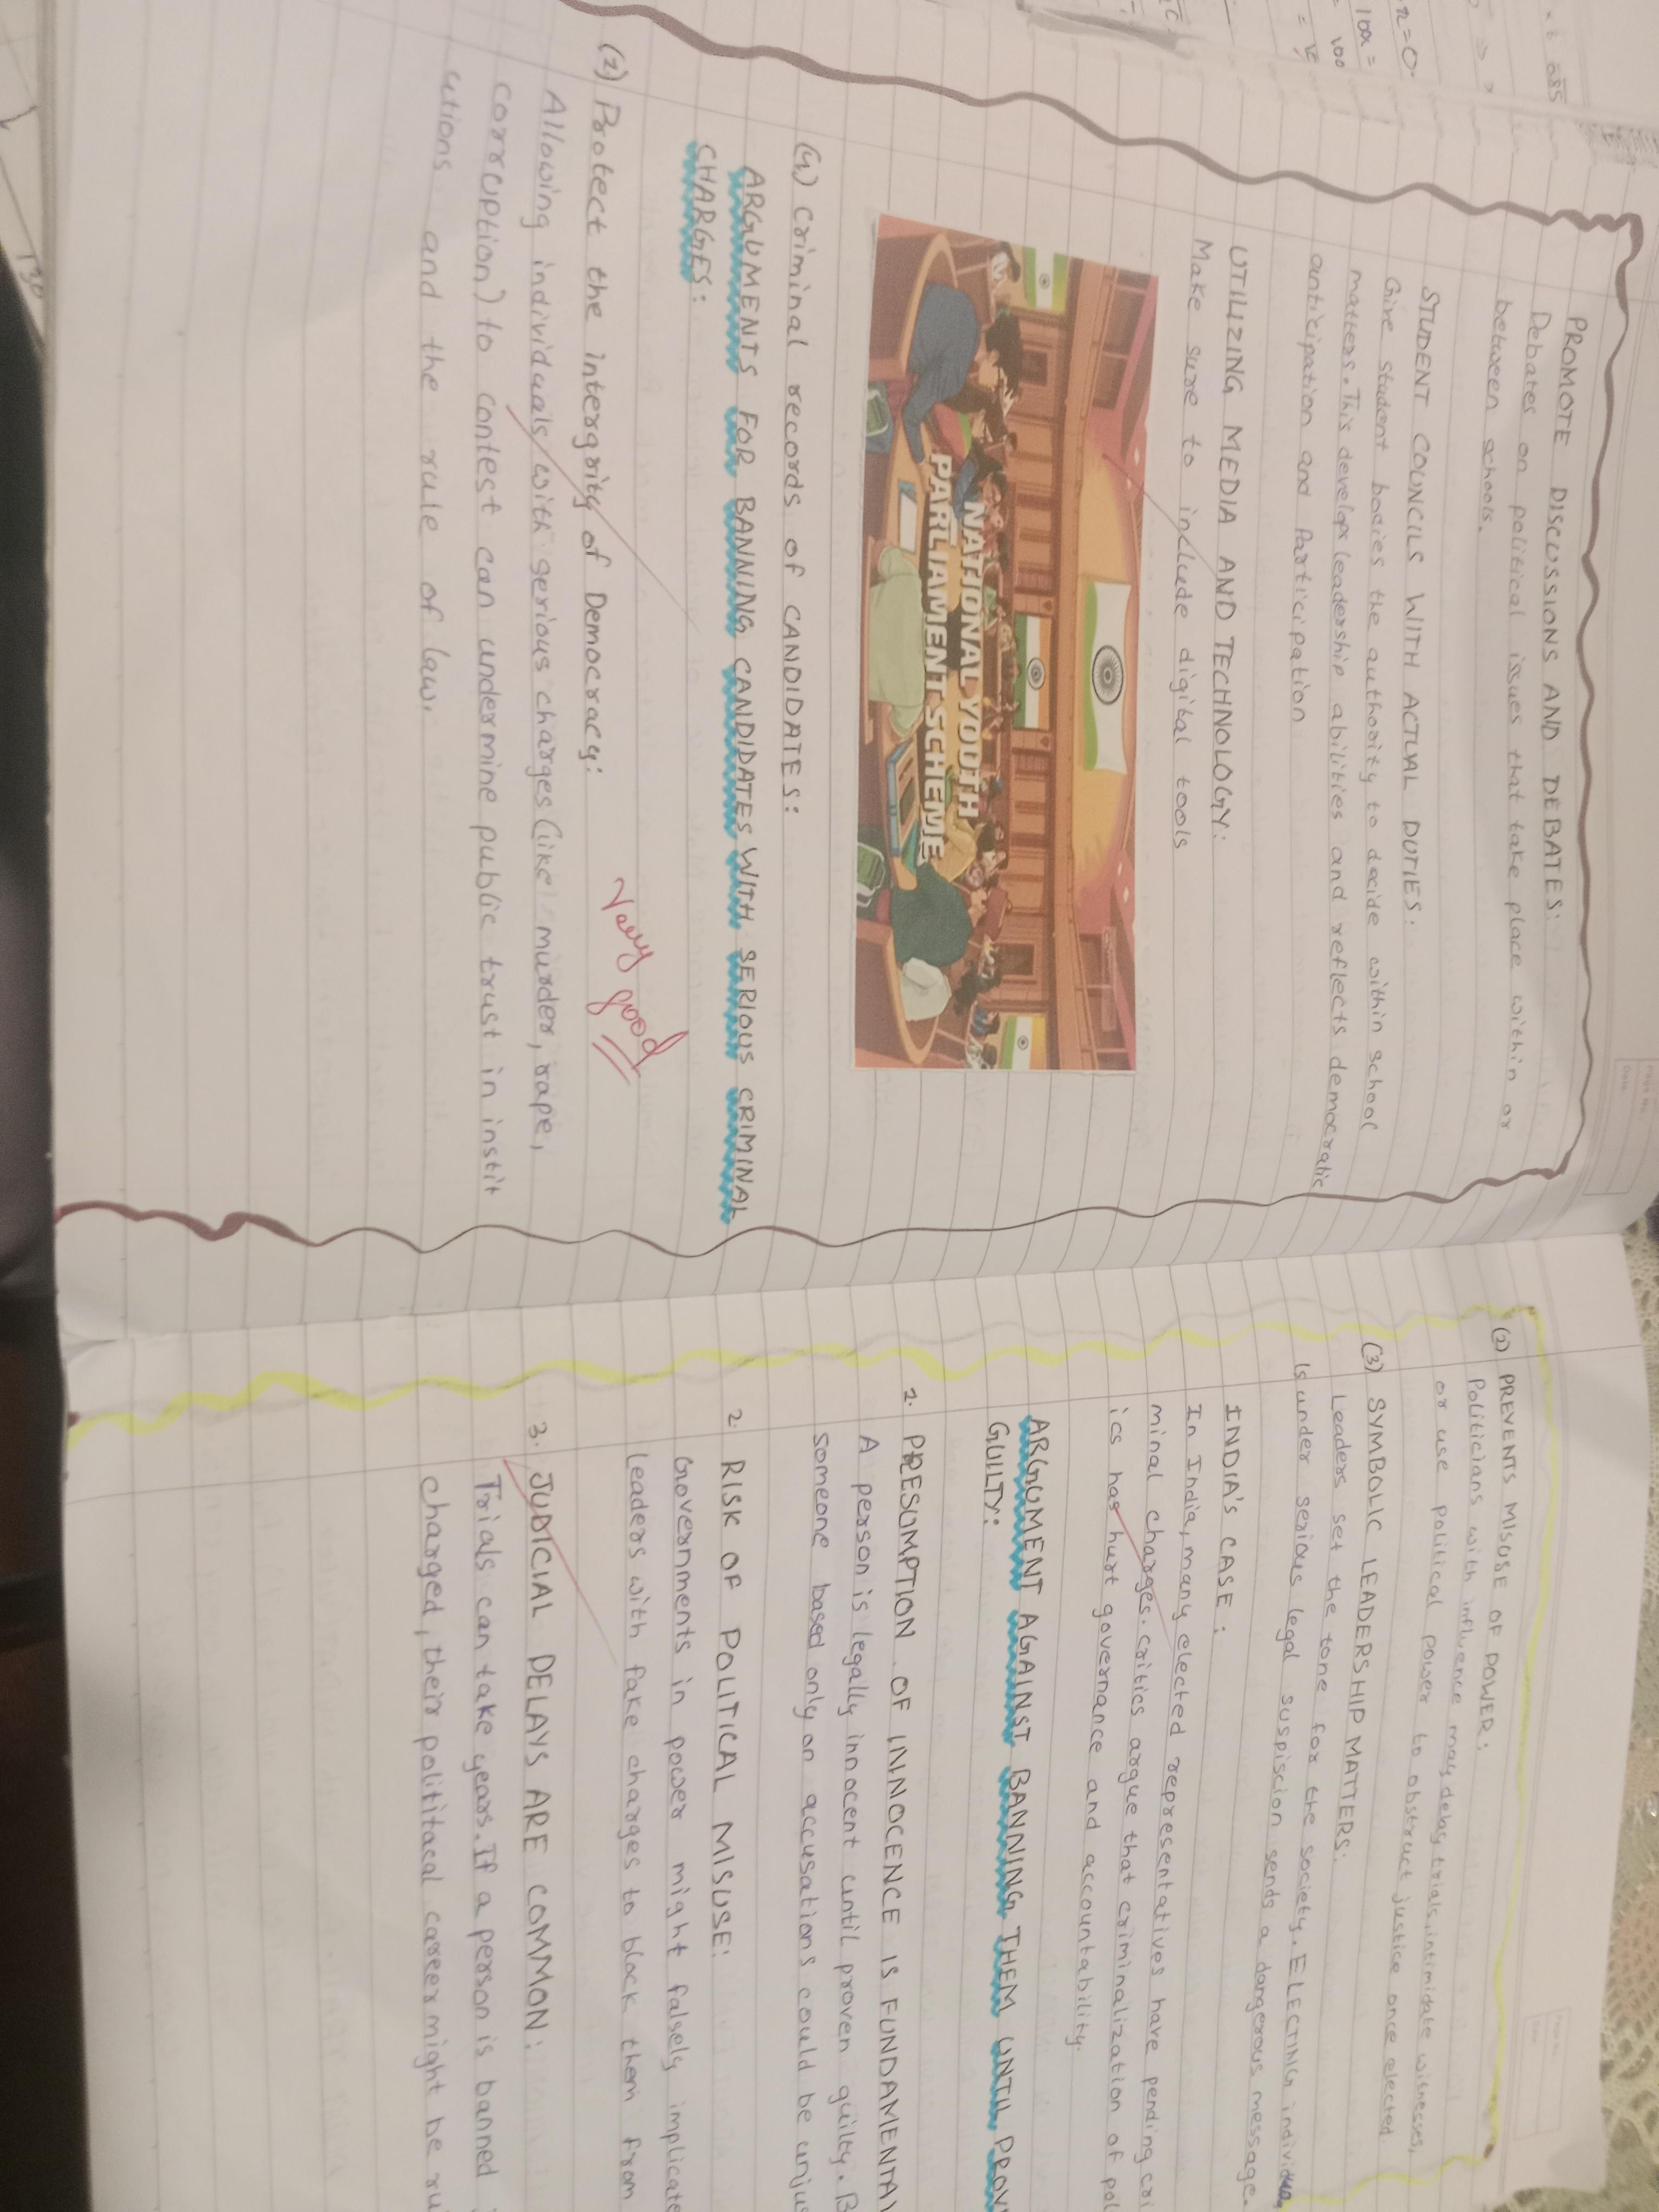 PROMOTE DISCUSSIONS AND DEBATES:
Debates on political issues that take place within or
between schools.
STUDENT COUNCILS WITH ACTUAL DUTIES:
Give student bodies the authority to decide within school
matters. This develops leadership abilities and reflects democratic
anticipation and Participation
UTILIZING MEDIA AND TECHNOLOGY:
Make sure to include digital tools
NATIONAL YOUTH
PARLIAMENT SCHEME
(4) Criminal records of CANDIDATES:
ARGUMENTS FOR BANNING CANDIDATES WITH SERIOUS CRIMINAL
CHARGES:
(1) Protect the intergrity of Democracy:
Allowing individuals with serious charges (like murder, rape,
corruption) to contest can undermine public trust in instit
utions and the rule of law.
Very good
(2) PREVENTS MISUSE OF POWER:
Politicians with influence may delay trials, intimidate witnesses,
or use political power to obstruct justice once elected
(3) SYMBOLIC LEADERSHIP MATTERS:
Leaders set the tone for the society. ELECTING individual
is under serious legal suspiscion sends a dangerous message.
INDIA'S CASE:
In India, many elected representatives have pending cri
minal charges. critics argue that criminalization of pol
ics has hurt governance and accountability.
ARGUMENT AGAINST BANNING THEM UNTIL PROV
GUILTY:
1. PRESUMPTION OF INNOCENCE IS FUNDAMENTAL
A person is legally innocent until proven guilty. B
someone based only on accusations could be unjus
2. RISK OF POLITICAL MISUSE:
Governments in power might falsely implicate
leaders with fake charges to block them from
3. JUDICIAL DELAYS ARE COMMON:
Trials can take years. If a person is banned
charged, their polititacal career might be ru